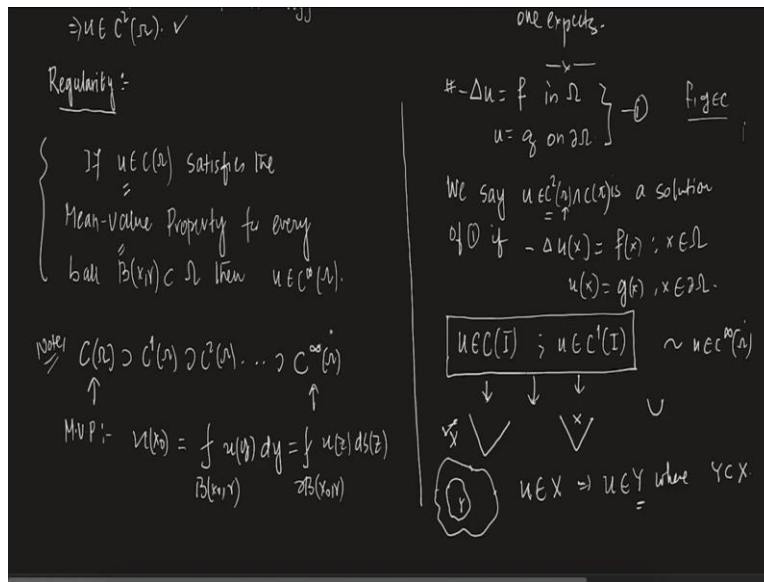 ⇒ u ∈ C²(Ω). ✓
Regularity :-
If u ∈ C(Ω) satisfies the
Mean-value Property for every
ball B(x,r) ⊂ Ω then u ∈ C^∞(Ω).
Note:
C(Ω) ⊃ C¹(Ω) ⊃ C²(Ω) . . . ⊃ C^∞(Ω)
M.V.P :- u(x₀) = ⨍ u(y) dy = ⨍ u(z) ds(z)
B(x₀,r) ∂B(x₀,r)
one expects.
—x—
# -Δu = f in Ω
u = g on ∂Ω } —①
f, g ∈ C
We say u ∈ C²(Ω) ∩ C(Ω̄) is a solution
of ① if -Δu(x) = f(x) ; x ∈ Ω
u(x) = g(x) , x ∈ ∂Ω.
u ∈ C(I) ; u ∈ C¹(I) ~ u ∈ C^∞(Ω)
↓ ↓ ↓
x
X
Y
u ∈ X ⇒ u ∈ Y where Y ⊂ X.